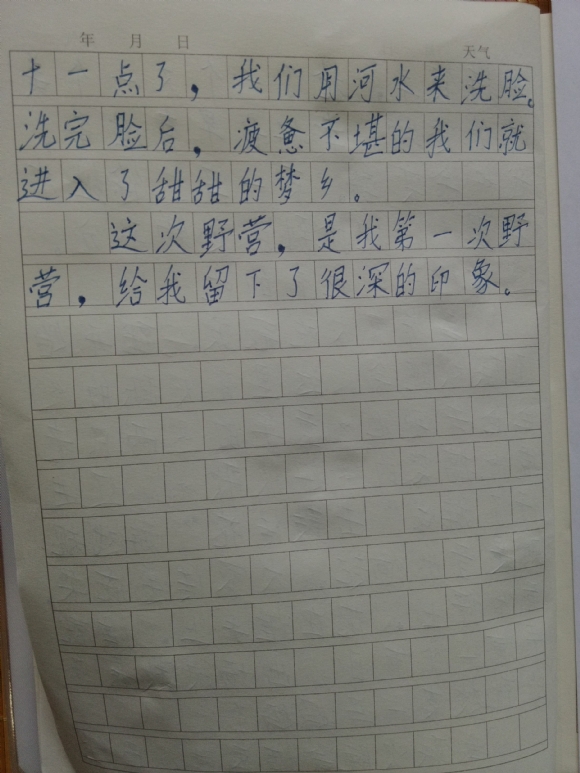 年 月 日 天气
十一点了，我们用河水来洗脸。
洗完脸后，疲惫不堪的我们就
进入了甜甜的梦乡。
这次野营，是我第一次野
营，给我留下了很深的印象。